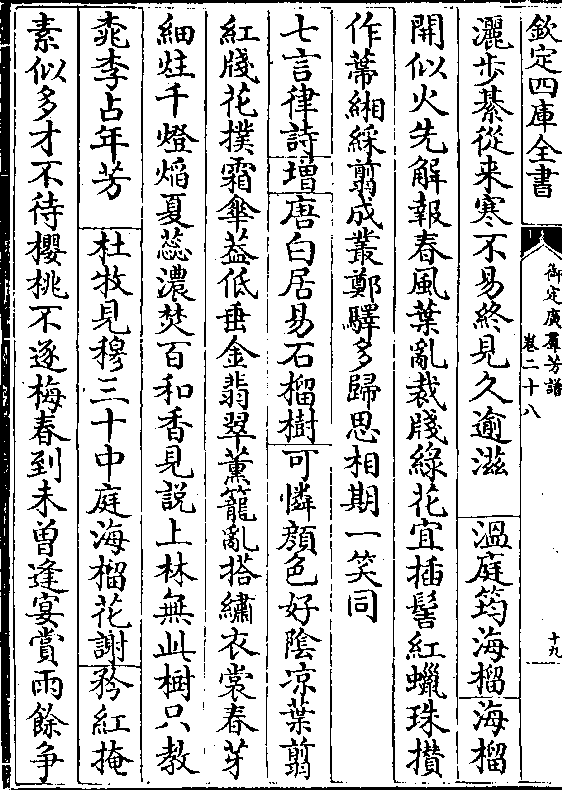 欽定四庫全書
御定廣羣芳譜
卷二十八
十九
灑步綦從来寒不易終見久逾滋　溫庭筠海榴海榴
開似火先解報春風葉亂裁牋綠花宜插髻紅蠟珠攢
作蔕緗綵剪成叢鄭驛多歸思相期一笑同
七言律詩增唐白居易石榴樹可憐顔色好陰凉葉翦
紅牋花撲霜傘葢低垂金翡翠薰籠亂搭繡衣裳春芽
細炷千燈焰夏蕊濃焚百和香見説上林無此樹只教
桃李占年芳　杜牧見穆三十中庭海榴花謝矜紅掩
素似多才不待櫻桃不逐梅春到未曽逢宴賞雨餘争